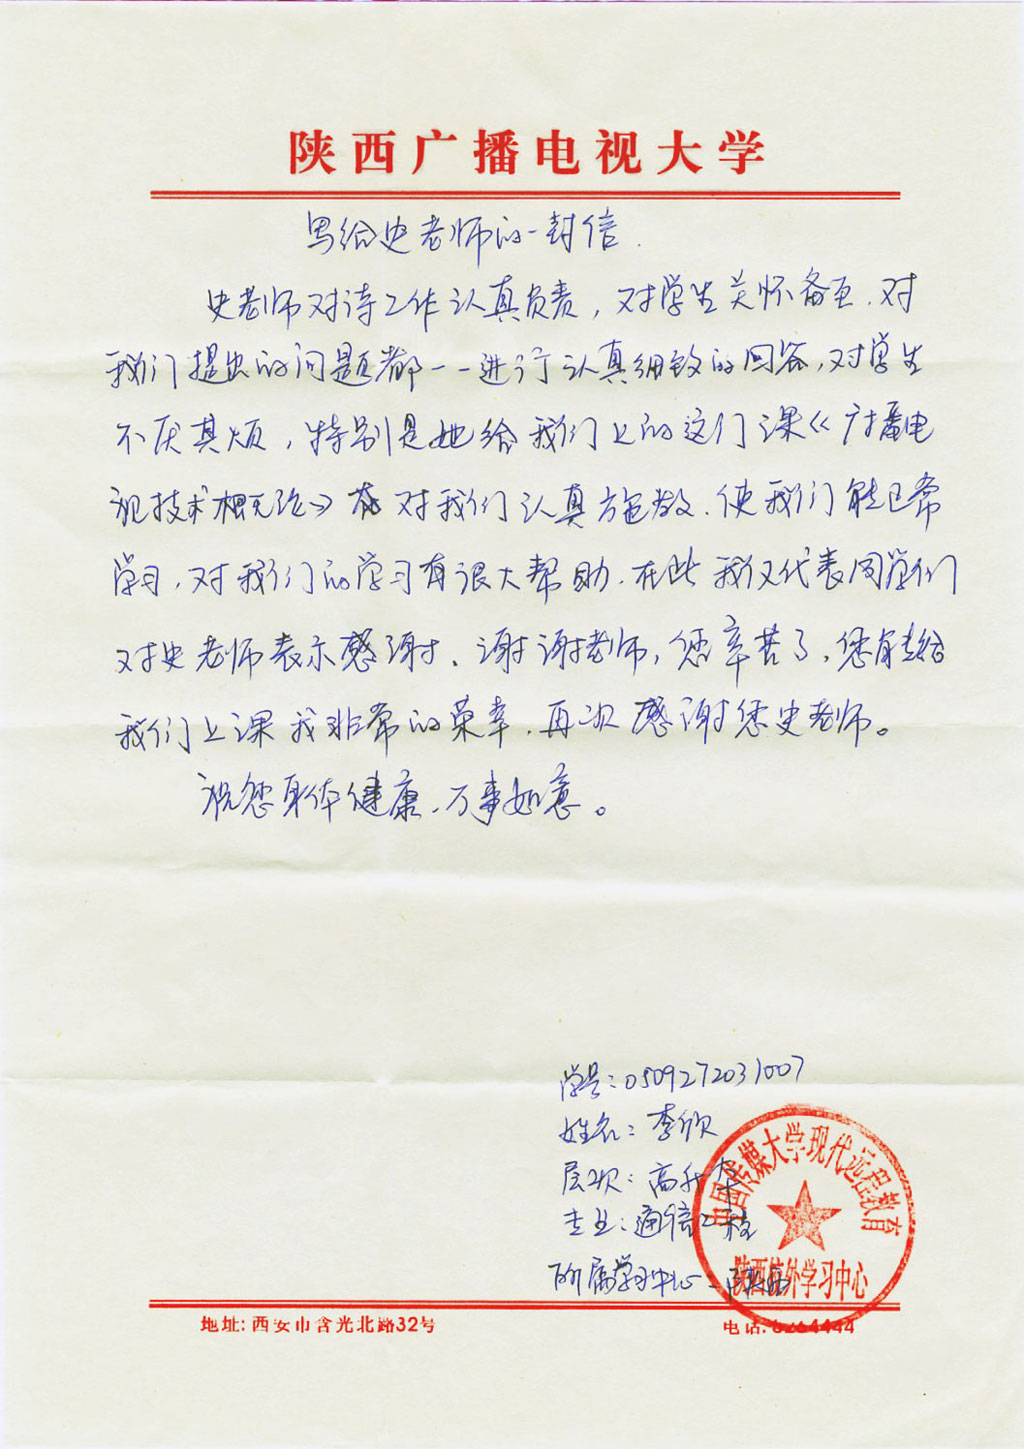 陕西广播电视大学
写给史老师的一封信.
史老师对待工作认真负责，对学生关怀备至.对
我们提出的问题都一一进行认真细致的回答，对学生
不厌其烦，特别是她给我们上的这门课《广播电
视技术概论》 对我们认真施教.使我们能正常
学习，对我们的学习有很大帮助.在此我仅代表同学们
对史老师表示感谢、谢谢老师，您辛苦了，您能给
我们上课我非常的荣幸.再次感谢您史老师。
祝您身体健康.万事如意。
学号：0509272031007
姓名：李欣
层次：高升本
专业：通信工程
所属学习中心-陕西
中国传媒大学现代远程教育
陕西校外学习中心
地址：西安市含光北路32号
电话:8264444